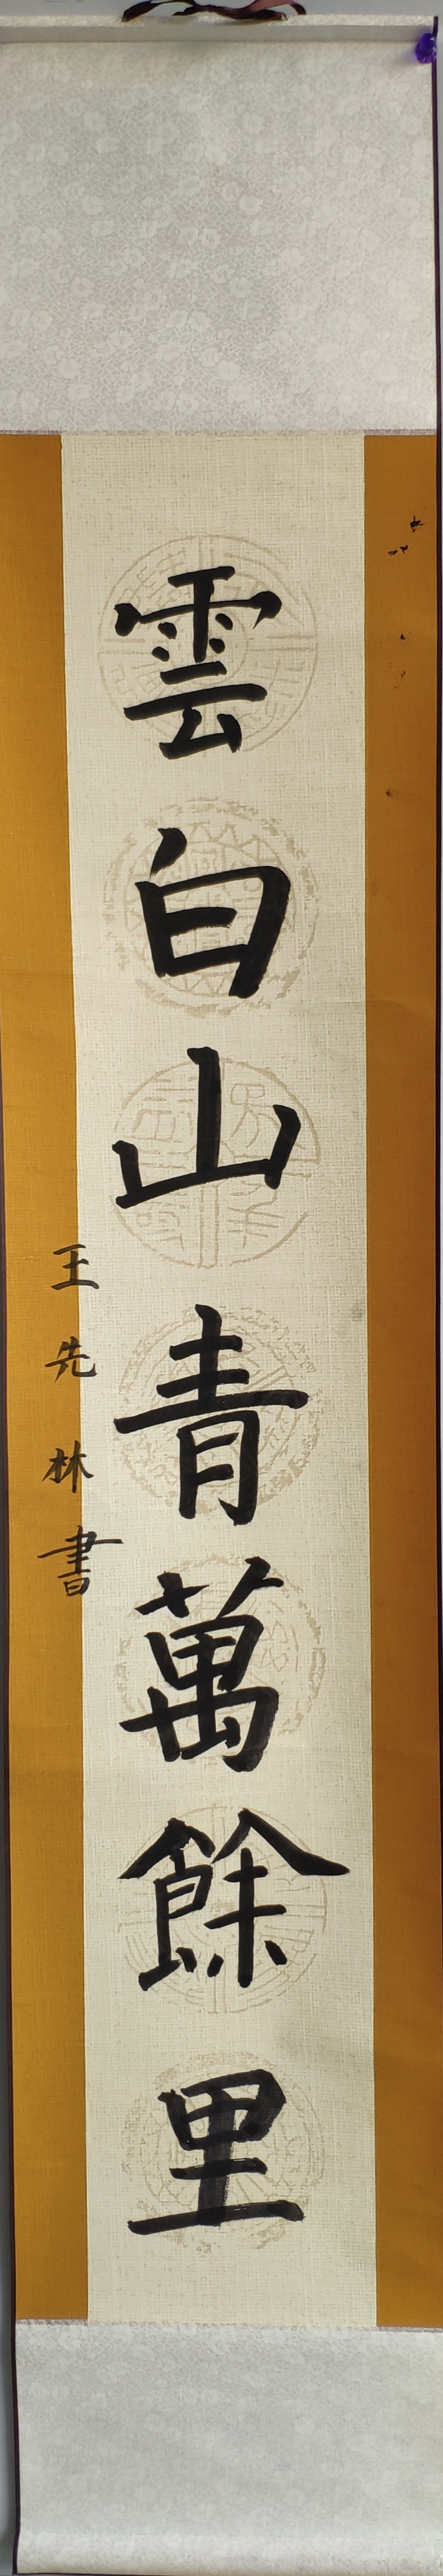 雲白山青萬餘里
王先林書